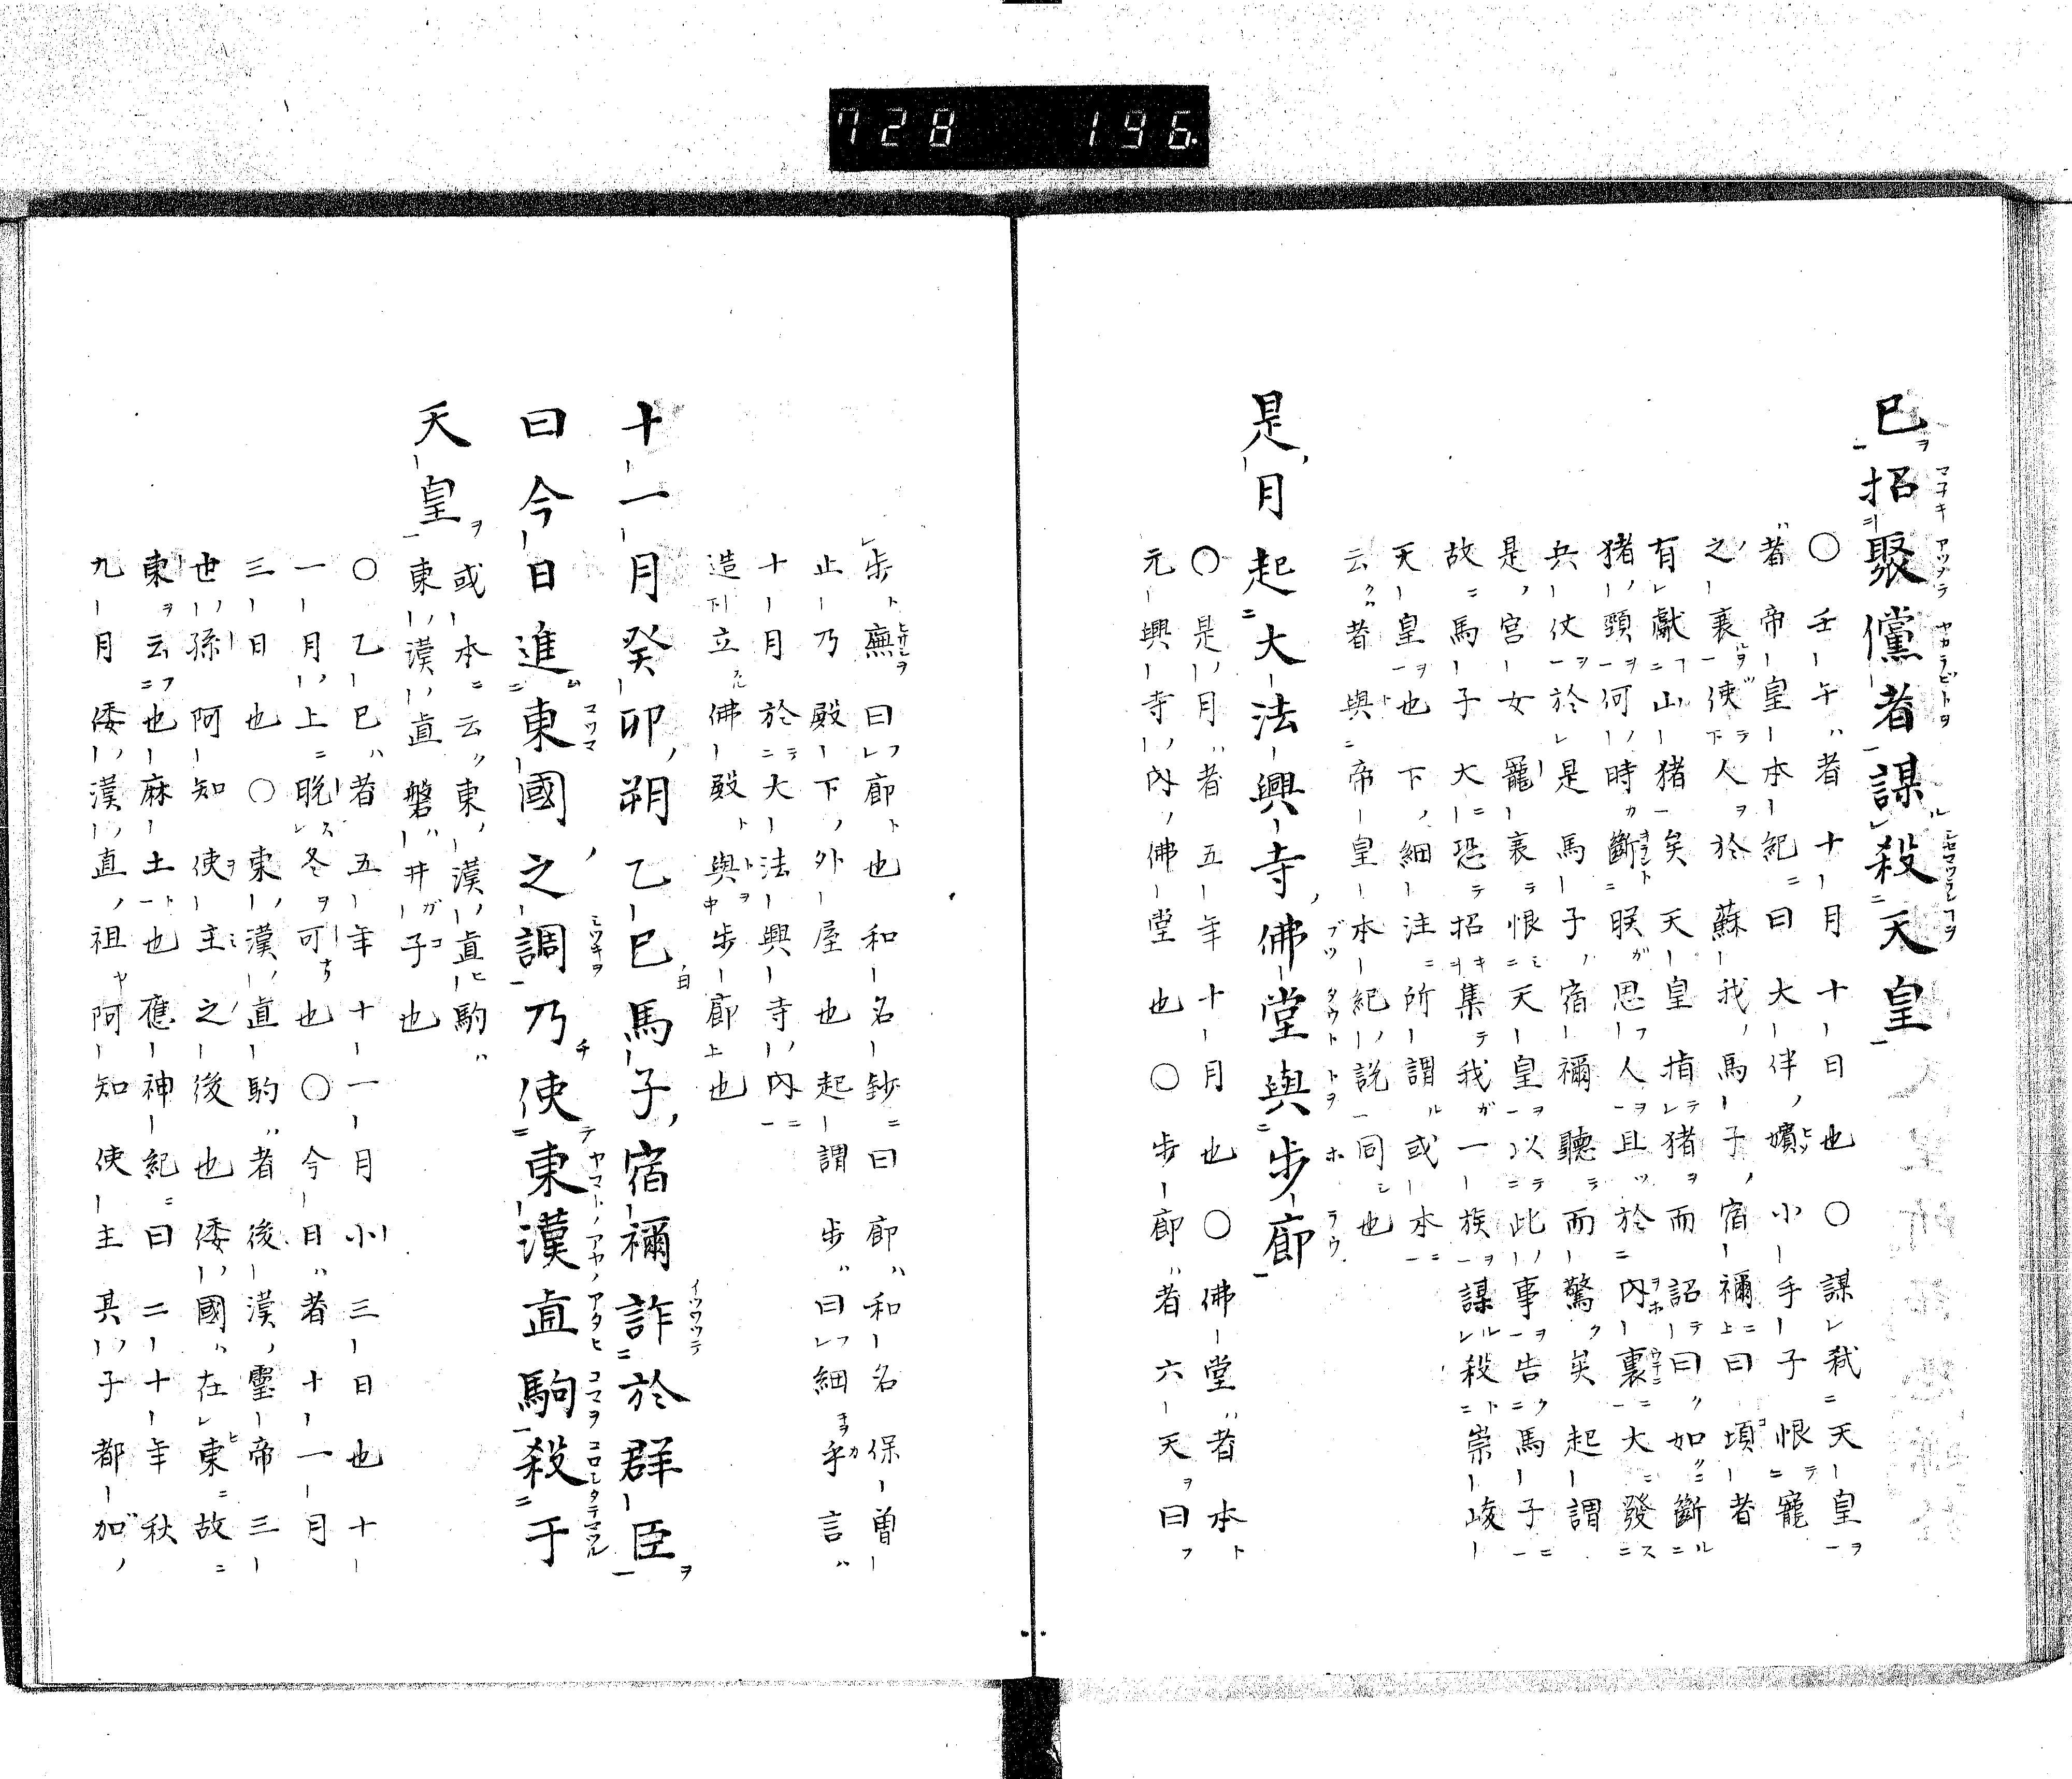 728 196.
已招聚儻者謀殺天皇
〇壬午者十月十日也〇謀弑天皇
者帝皇本紀曰大伴嬪小手子恨寵
之衰使人於蘇我馬子宿禰曰頃者
有獻山猪矣天皇指猪而詔曰如斷
猪頸何時斷朕思人且於內裏大發
兵仗於是馬子宿禰聽而驚矣起謂
是宮女寵衰恨天皇以此事告馬子
故馬子大恐招集我一族謀殺崇峻
天皇也下細注所謂或本
云者與帝皇本紀說同也
是月起大法興寺佛堂與步廊
〇是月者五年十月也〇佛堂者本
元興寺內佛堂也〇步廊者六天曰
步廡曰廊也和名鈔曰廊和名保曽
止乃殿下外屋也起謂步曰細乎言
十月於大法興寺內
造立佛殿與步廊也
十一月癸卯朔乙巳馬子宿禰詐於群臣
曰今日進東國之調乃使東漢直駒殺于
天皇
或本云東漢直駒
東漢直磐井子也
〇乙巳者五年十一月小三日也十
一月上晩冬可也〇今日者十一月
三日也〇東漢直駒者後漢靈帝三
世孫阿知使主之後也倭國在東故
東云也麻土也應神紀曰二十年秋
九月倭漢直祖阿知使主其子都加